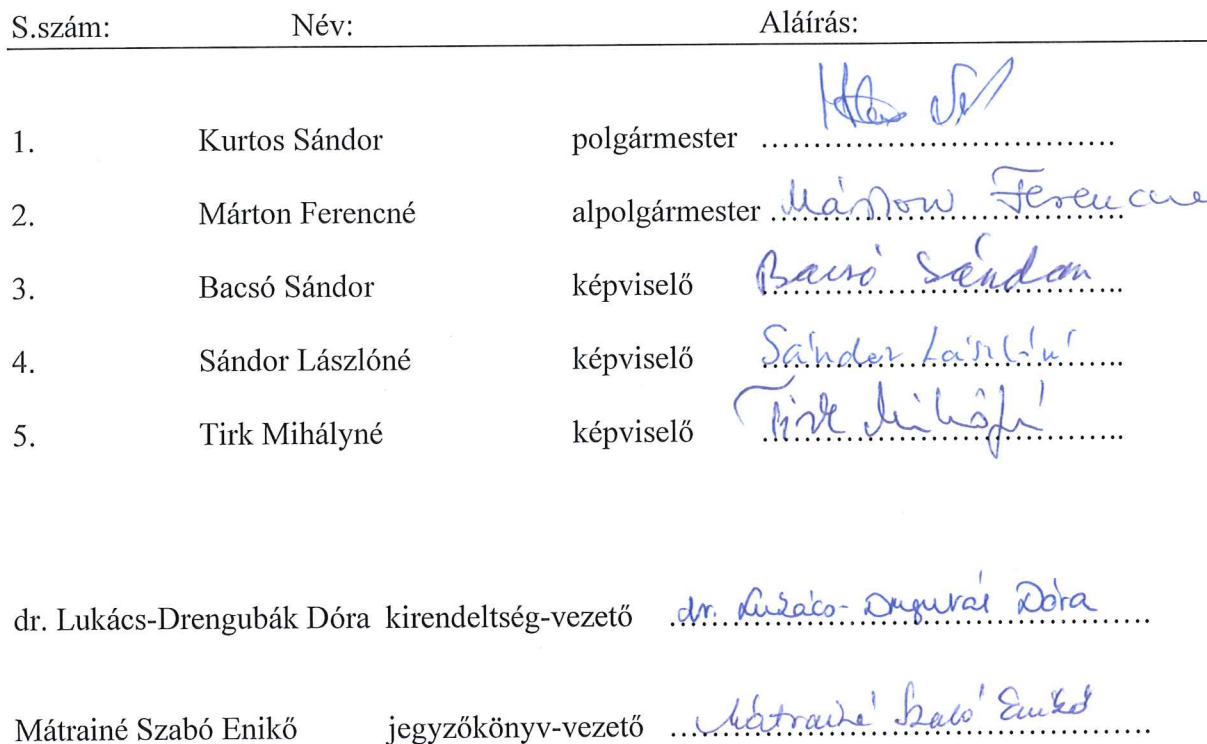 S.szám: Név: Aláírás:
1. Kurtos Sándor polgármester ..................................
2. Márton Ferencné alpolgármester Márton Ferencné
3. Bacsó Sándor képviselő Bacsó Sándor
4. Sándor Lászlóné képviselő Sándor Lászlóné
5. Tirk Mihályné képviselő Tirk Mihályné
dr. Lukács-Drengubák Dóra kirendeltség-vezető dr. Lukács-Drengubák Dóra
Mátrainé Szabó Enikő jegyzőkönyv-vezető Mátrainé Szabó Enikő